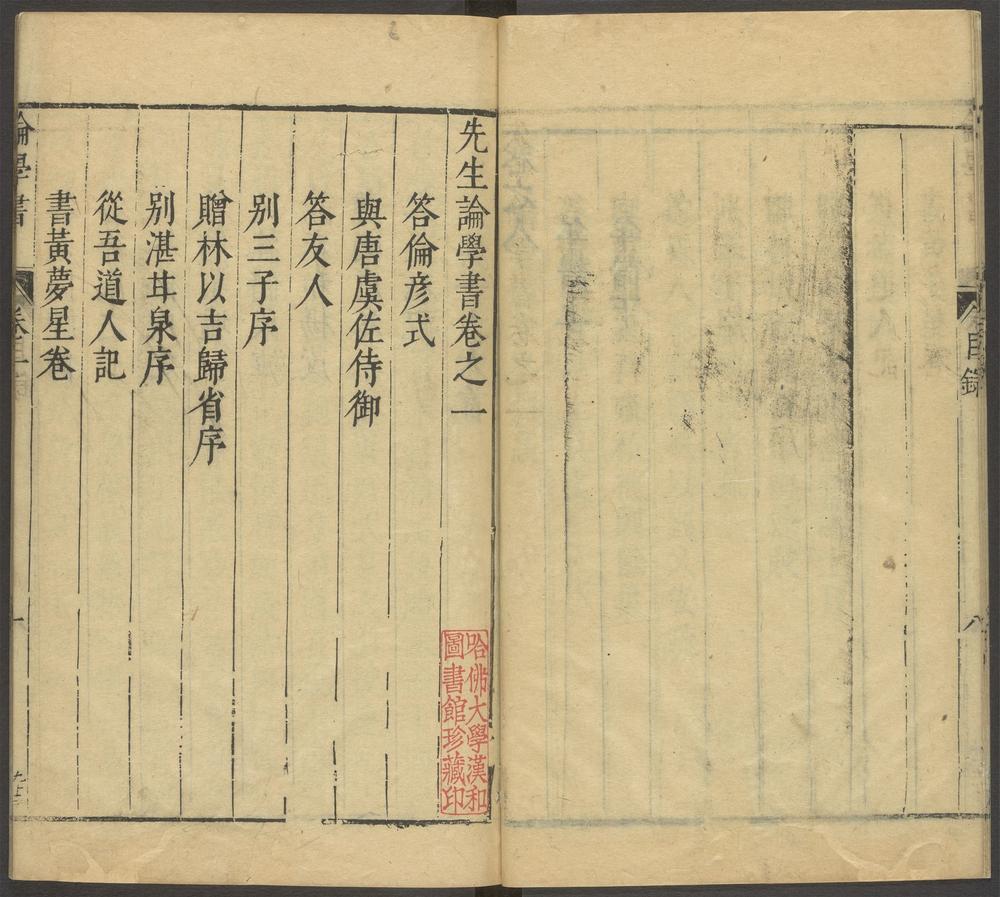 目錄
八
先生論學書卷之一
答倫彦式
與唐虞佐侍御
答友人
別三子序
贈林以吉歸省序
別湛甘泉序
從吾道人記
書黃夢星卷
論學書
卷三
一
哈佛大學漢和
圖書館珍藏印